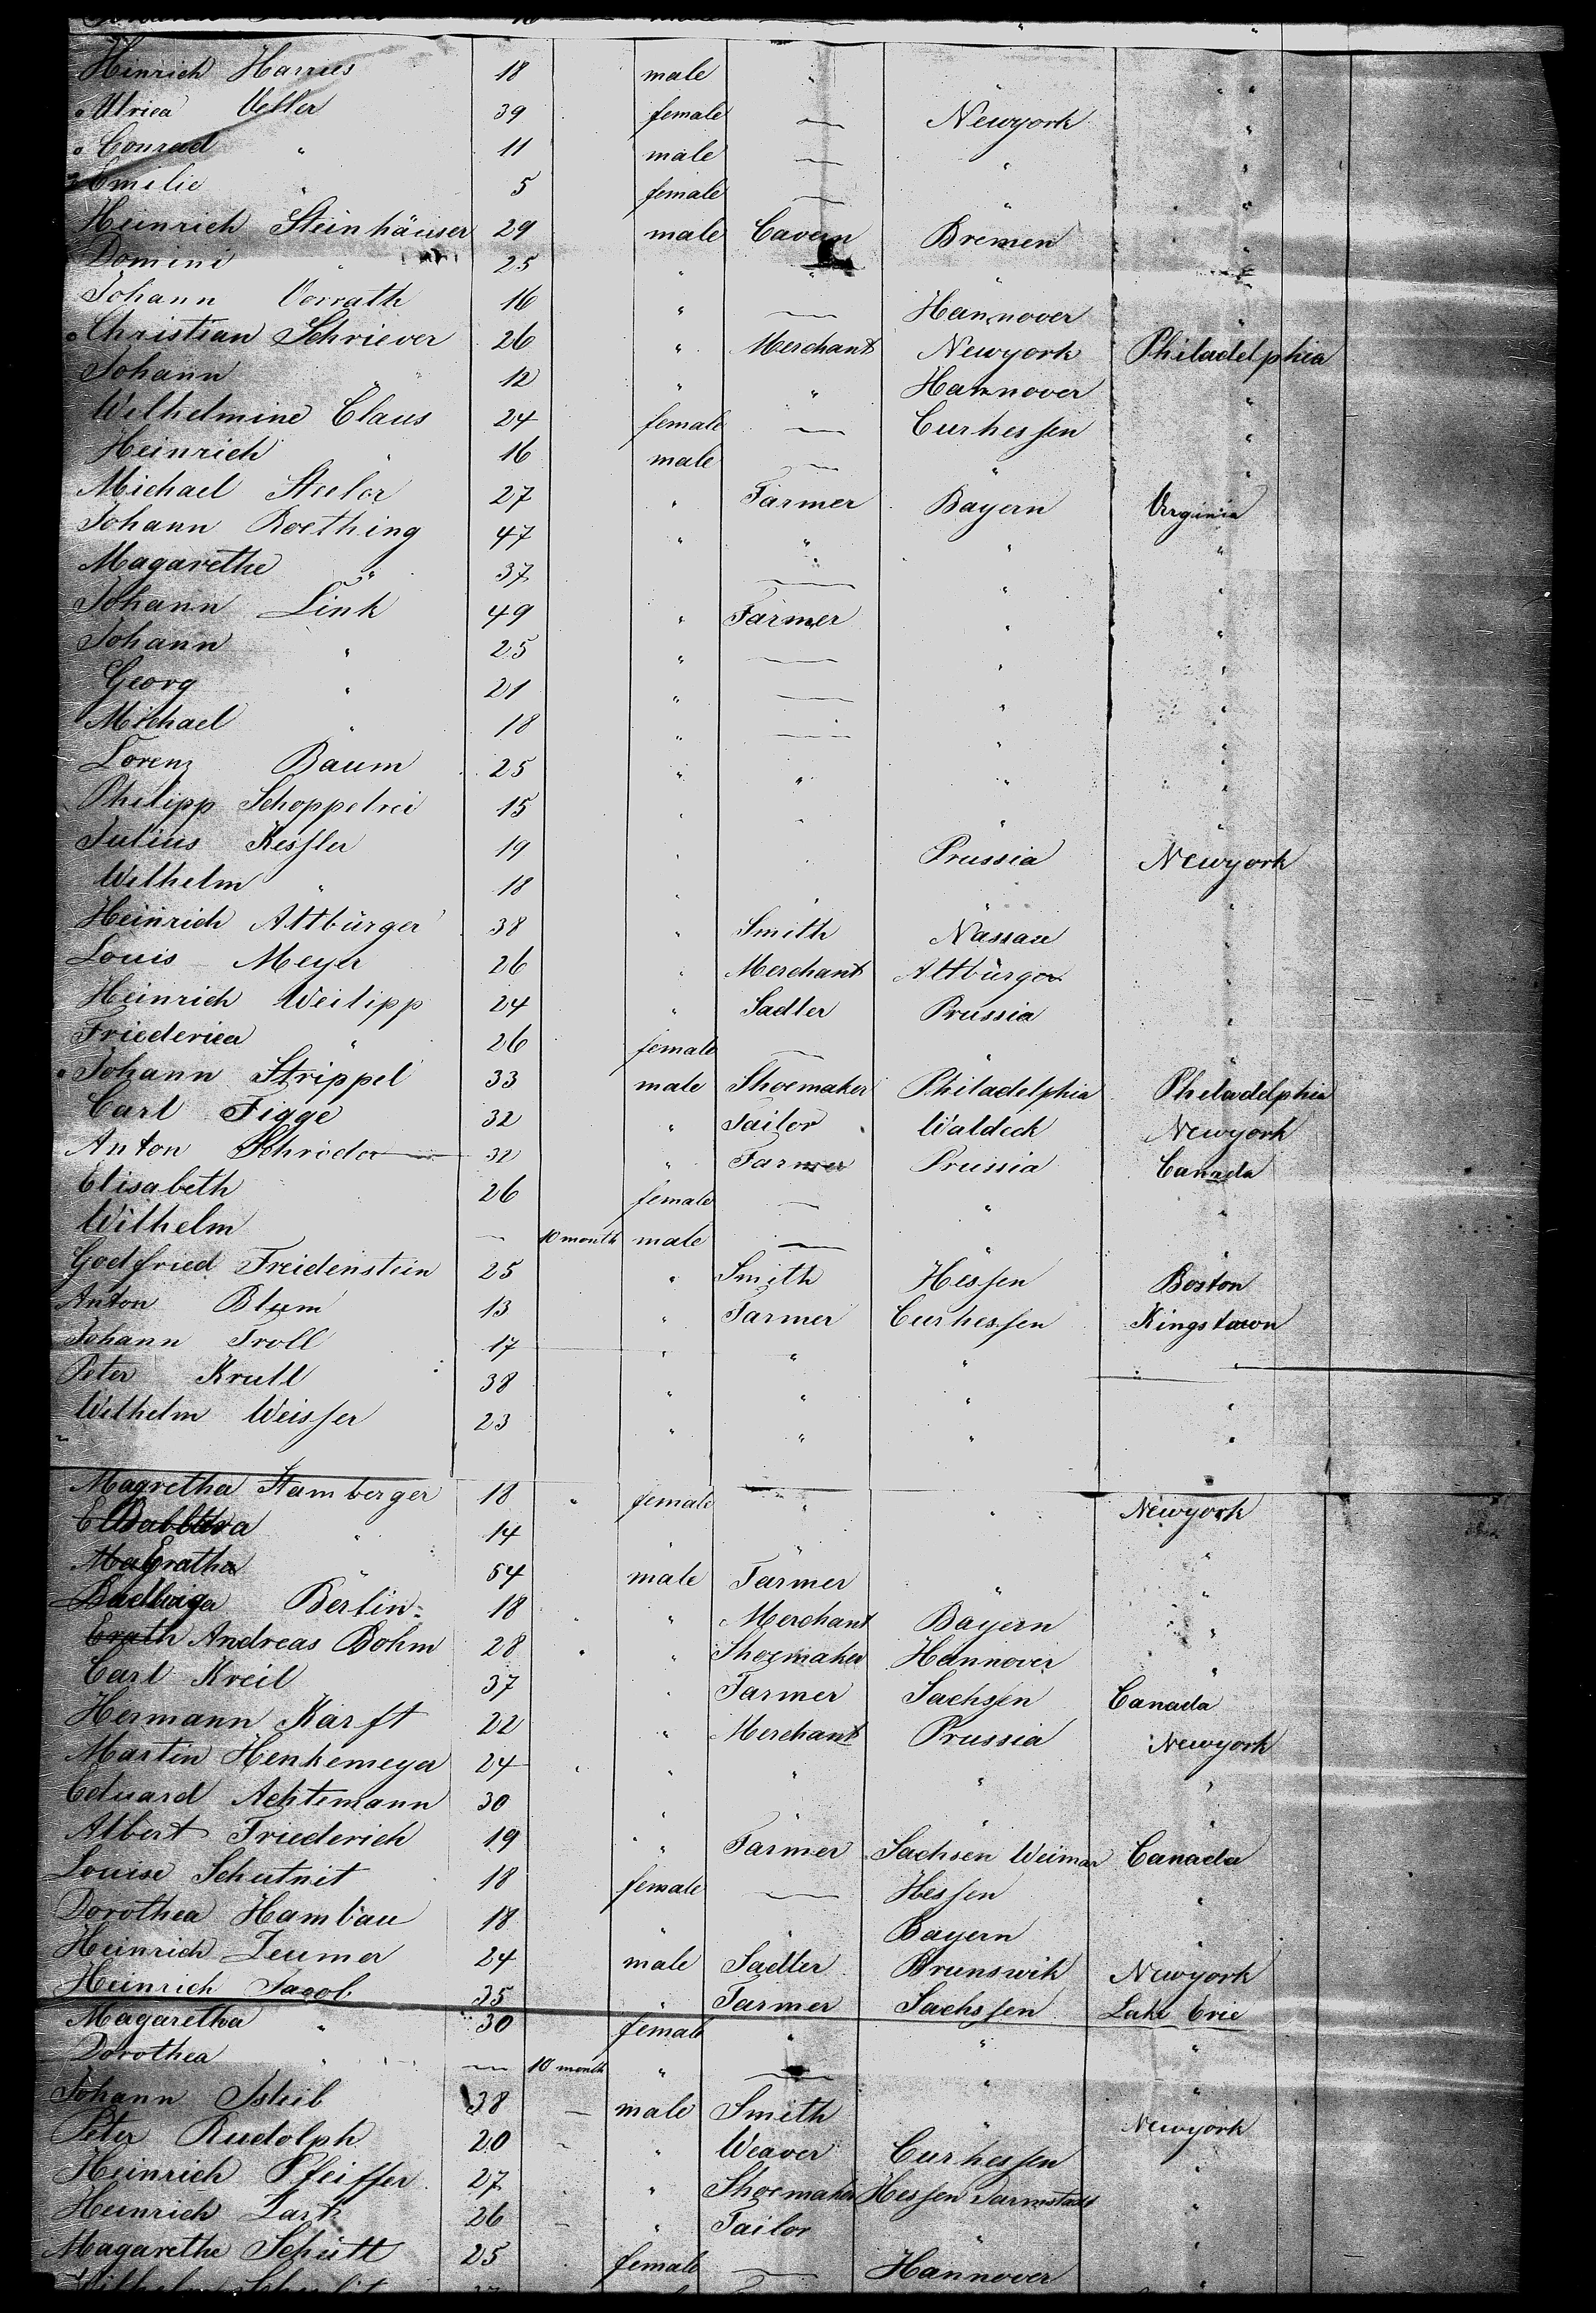 Hinrich Harries 18 male " " "
Ulrica Veller 39 female — Newyork "
Conrad " 11 male — " "
Emilie " 5 female — " "
Heinrich Steinhäuser 29 male Cavern Bremen "
Domini " 25 " " " "
Johann Vorrath 16 " — Hannover "
Christian Schriever 26 " Merchant Newyork Philadelphia
Johann " 12 " " Hannover "
Wilhelmine Claus 24 female — Curhessen "
Heinrich " 16 male — " "
Michael Steeler 27 " Farmer Bayern Virginia
Johann Roething 47 " " " "
Magarethe " 37 — " "
Johann Link 49 " Farmer " "
Johann " 25 " — " "
Georg " 21 " — " "
Michael " 18 " — " "
Lorenz Baum 25 " " " "
Philipp Schoppelrei 15 " " " "
Julius Kessler 19 " " Prussia Newyork
Wilhelm " 18 " " " "
Heinrich Altbürger 38 " Smith Nassau "
Louis Meyer 26 " Merchant Altbürger "
Heinrich Weilipp 24 " Sadler Prussia "
Friederica " 26 female — " "
Johann Strippel 33 male Shoemaker Philadelphia Pheladelphia
Carl Figge 32 " Tailor Waldeck Newyork
Anton Schröder 32 " Farmer Prussia Canada
Elisabeth 26 female — " "
Wilhelm — 10 month male — " "
Godfried Freidenstein 25 " Smith Hessen Boston
Anton Blum 13 " Farmer Curhessen Kingstown
Johann Troll 17 " " " "
Peter Krull 38 " " " "
Wilhelm Weisser 23 " " " "
Magretha Stamberger 18 " female — " Newyork
" 14 " " "
" 54 male Farmer " "
Berlin 18 " " Merchant Bayern "
Andreas Bohm 28 " " Shoemaker Hannover "
Carl Kreil 37 " Farmer Sachsen Canada
Hermann Karft 22 " Merchant Prussia Newyork
Martin Henkemeyer 24 " " " " "
Eduard Achtemann 30 " " "
Albert Friederich 19 " " Farmer Sachsen Weimar Canada
Louise Schutnit 18 female — Hessen "
Dorothea Hambau 18 " " Bayern "
Heinrich Zeumer 24 male Sadler Brunswik Newyork
Heinrich Jacob 35 " Farmer Sachssen Lake Erie
Magaretha " 30 female " " "
Dorothea " — 10 month " — " "
Johann Isleib 38 — male Smith " Newyork
Peter Rudolph 20 — " Weaver Curhessen "
Heinrich Pfeiffer 27 " " Shoemaker Hessen Darmstadt "
Heinrich Lartz 26 — " Tailor " "
Magarethe Schütt 25 female — Hannover "